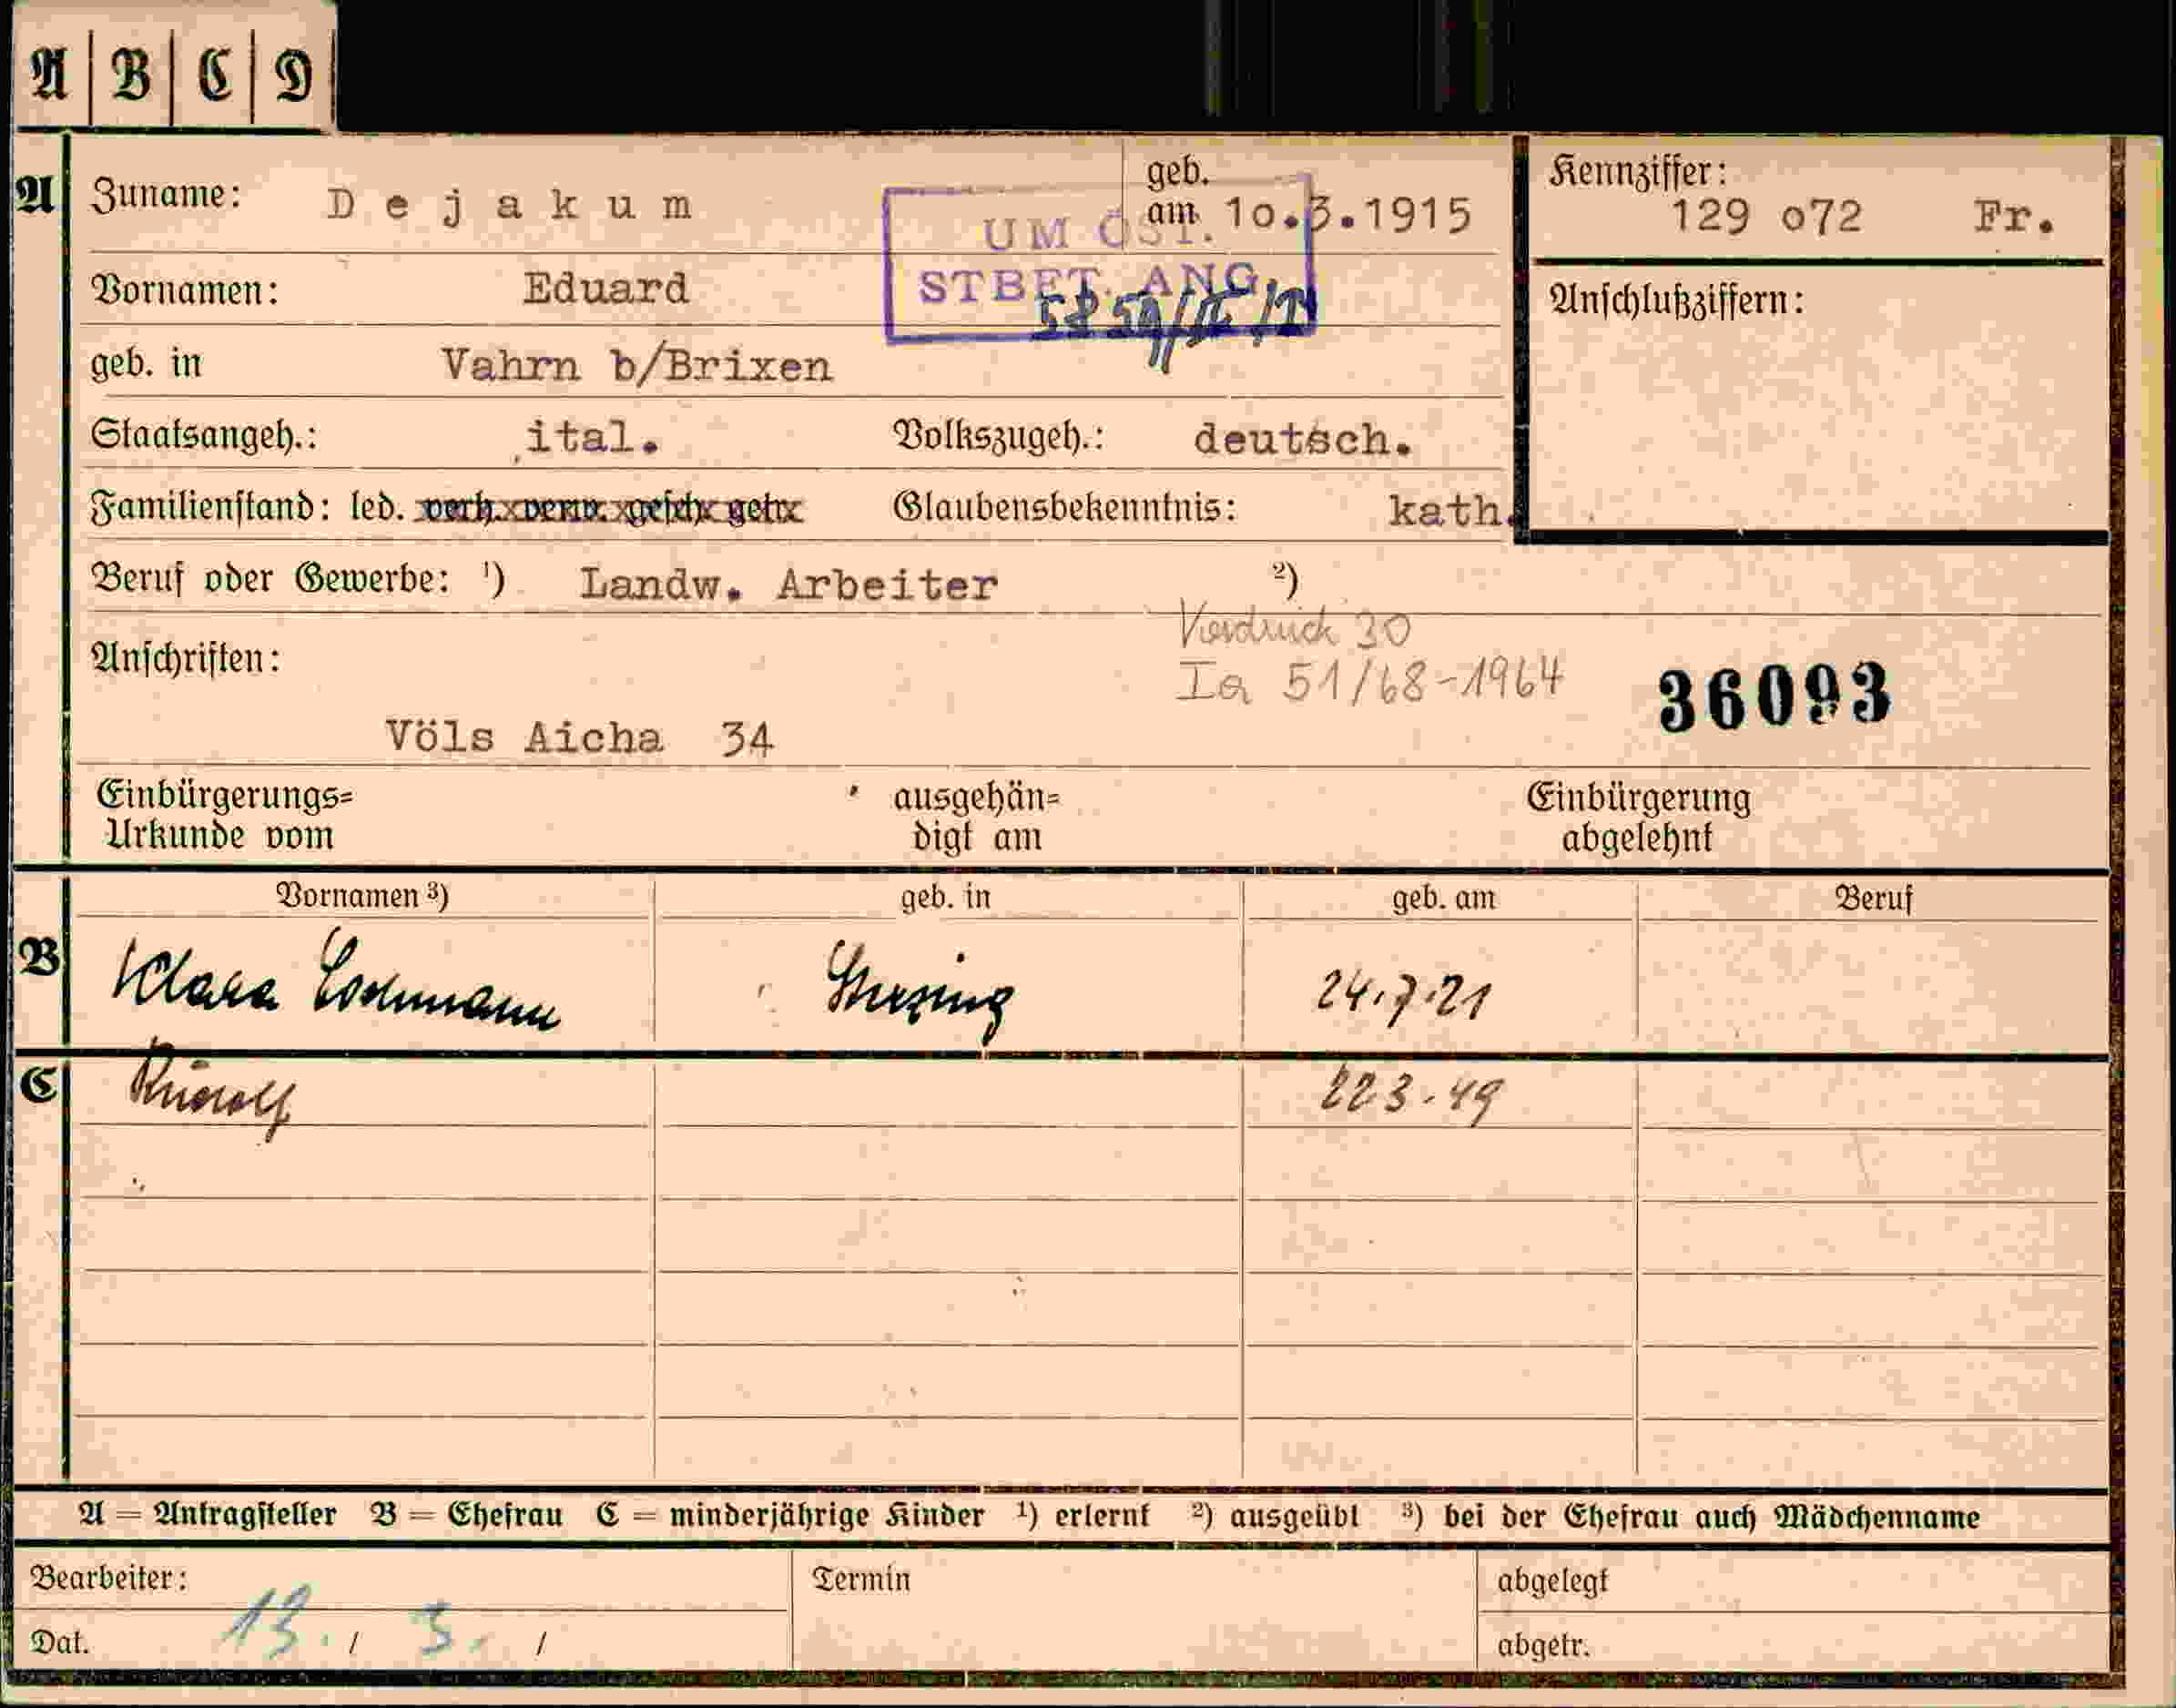 A B C D
A Zuname: Dejakum geb. am 10.3.1915 Kennziffer: 129 o72 Fr.
UM ÖST.
STBET. ANG.
Vornamen: Eduard Anschlußziffern:
geb. in Vahrn b/Brixen
Staatsangeh.: ital. Volkszugeh.: deutsch.
Familienstand: led. verh. verw. gesch. getr. Glaubensbekenntnis: kath.
Beruf oder Gewerbe: ¹) Landw. Arbeiter ²)
Vordruck 30
Anschriften: Ia 51/68-1964 36093
Völs Aicha 34
Einbürgerungs= ausgehän= Einbürgerung
Urkunde vom digt am abgelehnt
Vornamen ³) geb. in geb. am Beruf
B Klara 24.7.21
C Rudolf 22 3.49
A = Antragsteller B = Ehefrau C = minderjährige Kinder ¹) erlernt ²) ausgeübt ³) bei der Ehefrau auch Mädchenname
Bearbeiter: Termin abgelegt
Dat. 13. / 3. / abgetr.